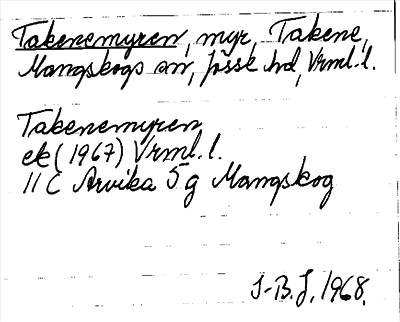 Takenemyren, myr, Takene,
Mangskogs sn, Jösse hd, Vrml. l.
Takenemyren
ek (1967) Vrml. l.
11 C Arvika 5 g Mangskog
S-B.J. 1968.